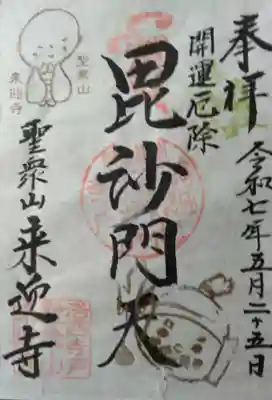 奉拝
令和七年五月二十五日
開運厄除
毘沙門天
聖衆山来迎寺
聖衆山
来迎寺